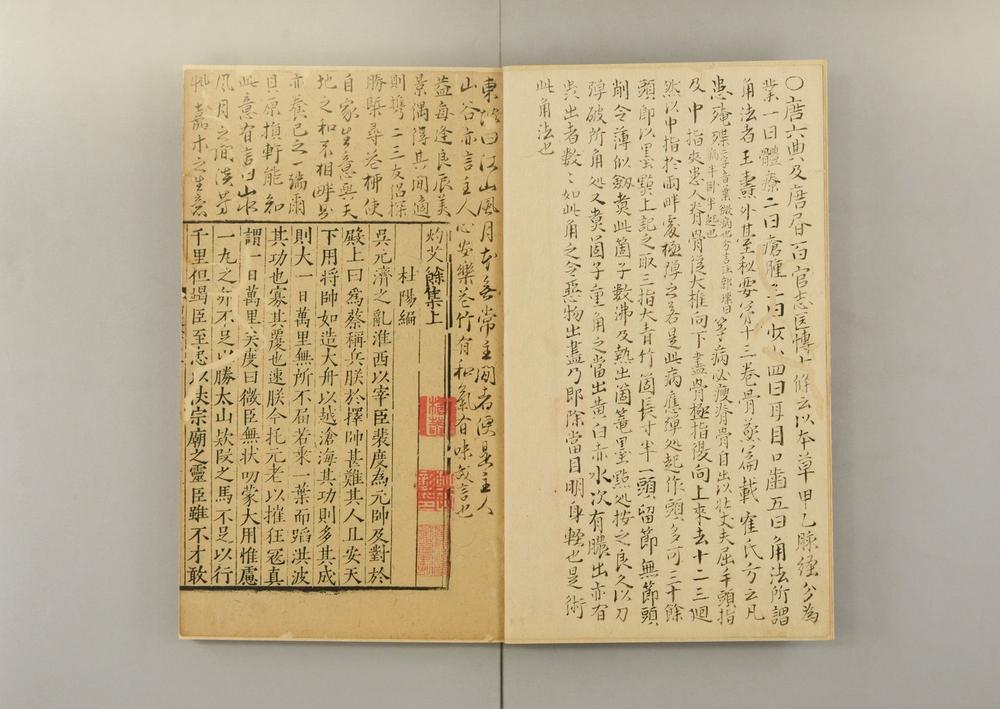 〇唐六典及唐書百官志医博士條云以本草甲乙脉經分為
業一曰體療二曰瘡腫三曰少小四曰耳目口齒五曰角法所謂
角法者王燾外臺秘要第十三卷骨蒸篇載崔氏方云凡
患殗殜二字音葉微病也方言注郭璞曰病半卧半起也等病必瘦脊骨自出以壯丈夫屈手頭指
及中指夾患人脊骨從大椎向下盡骨極指復向上來去十二三迴
然以中指於兩畔處極彈之若是此病應弾処起作頭多可三十餘
頭即以墨點上記之取三指大青竹筒長寸半一頭留節無節頭
削令薄似劔煮此筒子數沸及熱出筒籠墨點処按之良久以刀
弾破所角処又煮筒子重角之當出黄白赤水次有膿出亦有
虫出者数〻如此角之令惡物出盡乃即除當目明身輕也是術
此角法也
東坡曰江山風月本無常主閒者便是主人
山谷亦言主人心安樂花竹有和氣有味哉言也
益每逢良辰美
景偶得其間適
則携二三友侶探
勝槩尋花柳使
自家生意與天
地之和不相畔是
亦養已之一端爾
貝原損軒能知
此意有言曰山水
風月之間
嘉木之生意
灼艾餘集上
杜陽編
吳元濟之亂淮西以宰臣裴度為元帥及對於
殿上曰爲蔡稱兵朕於擇帥甚難其人且安天
下用將帥如造大舟以越滄海其功則多其成
則大一日萬里無所不屆若乘一葉而蹈洪波
其功也寡其覆也速朕今托元老以摧狂寇真
謂一日萬里矣度曰微臣無状叨蒙大用惟慮
一丸之卵不足以勝太山欵段之馬不足以行
千里但竭臣至忠以伏宗廟之靈臣雖不才敢